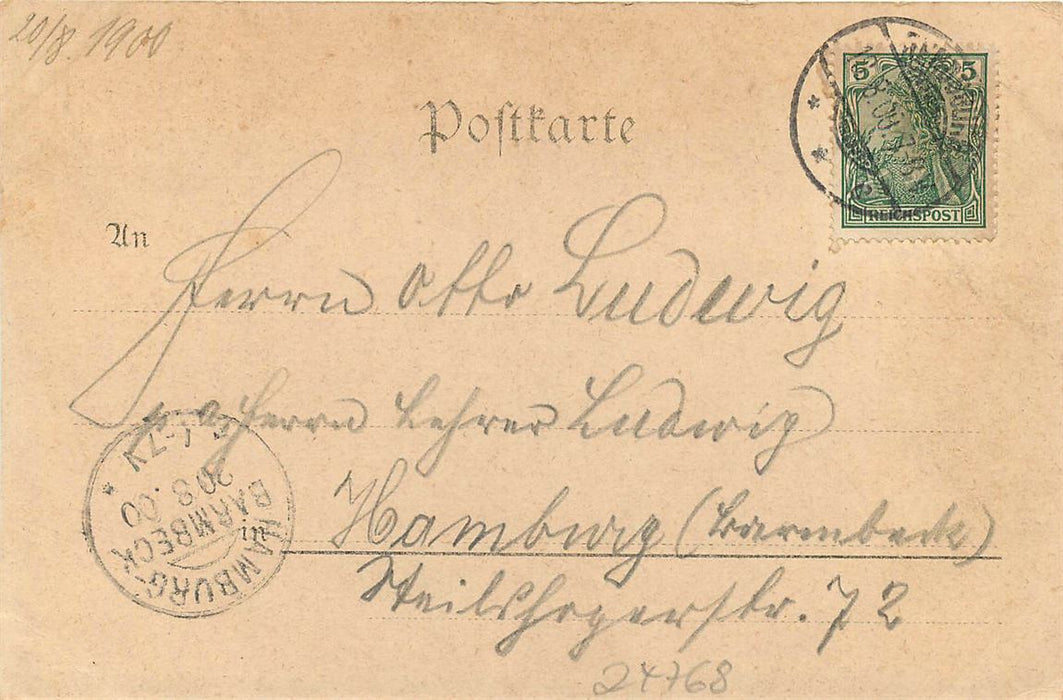 20/8. 1900
Postkarte
5 5
REICHSPOST
An
Herrn Otto Ludwig
Herrn Lehrer Ludwig
in Hamburg (Barmbeck)
Steilshoperstr. 72
24768
HAMBURG-
BARMBECK
20.8.00